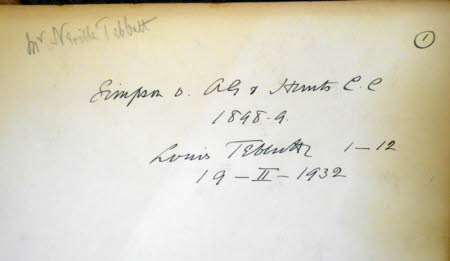 Mr Neville Tebbutt
1
Simpson v. AG & Hunts C.C
1898-9.
Louis Tebbutt 1-12
19-II-1932